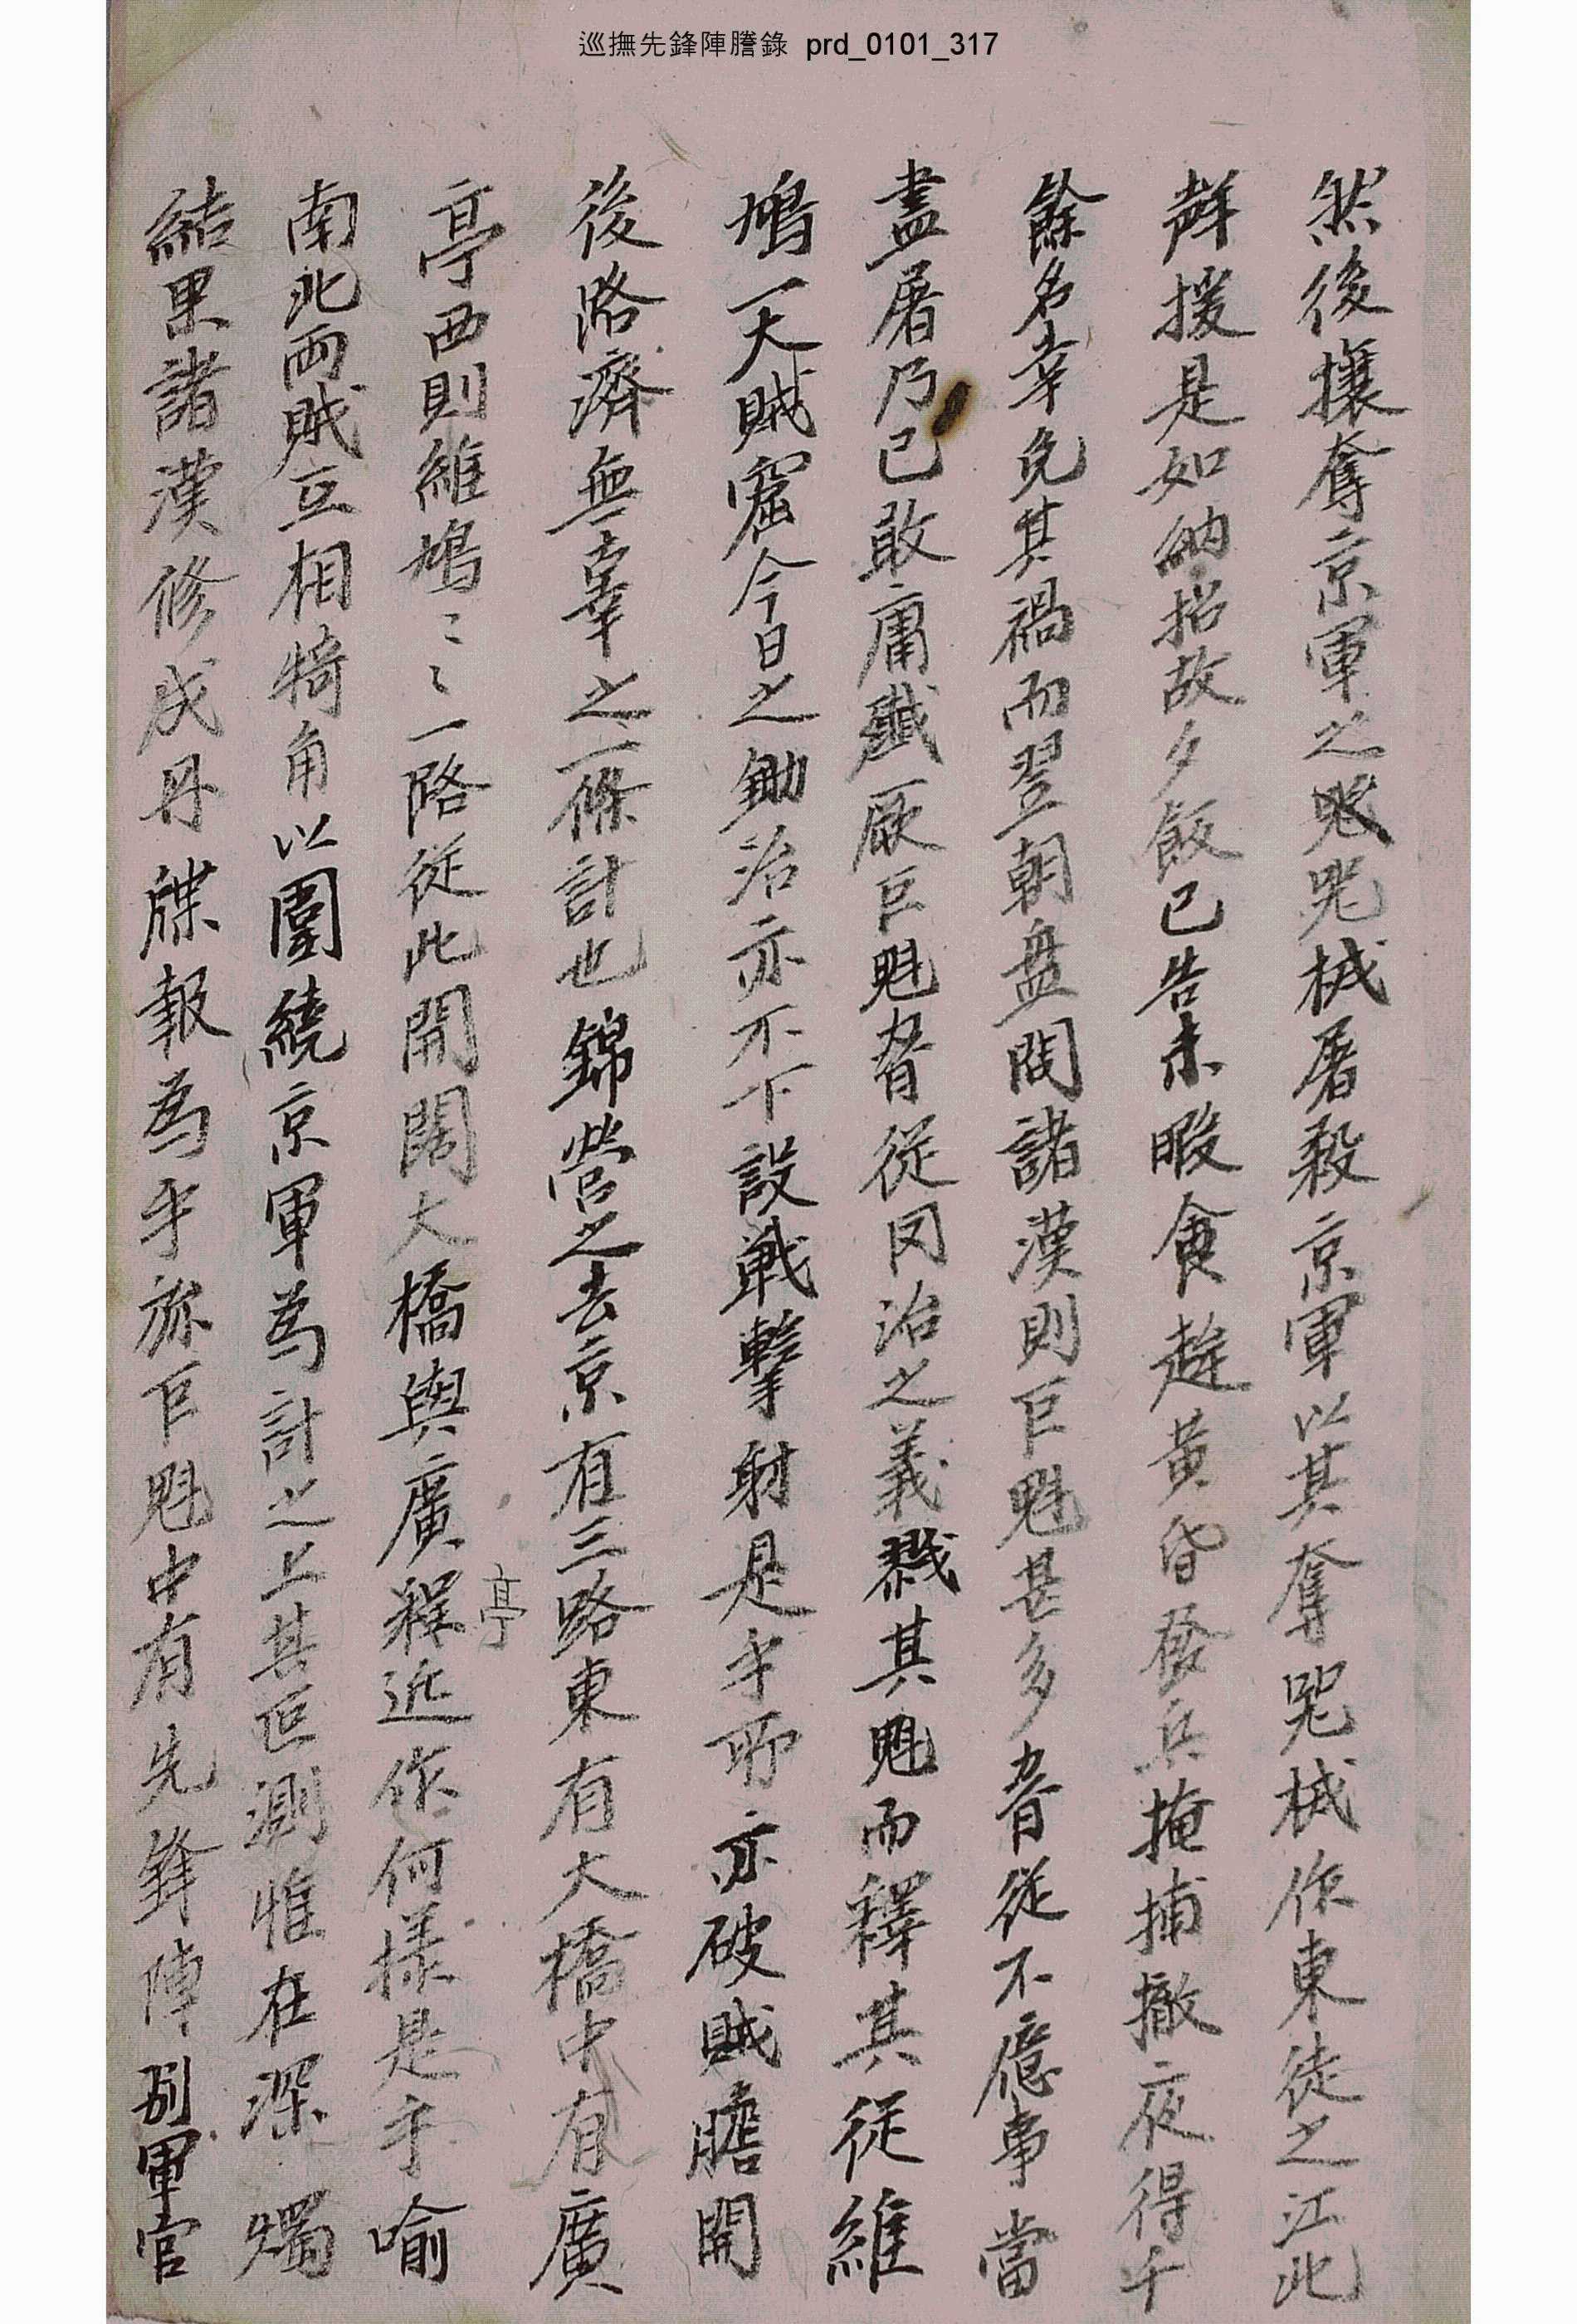 巡撫先鋒陣謄錄 prd_0101_317
然後攘奪京軍之咒械屠殺京軍以其奪咒械作東徒之江北
聲援是如納招故夕飯已告未暇食趂黃昏發兵掩捕撤夜得千
餘名幸免其禍而翌朝盘問諸漢則巨魁甚多脅從不億事當
盡屠乃已敢庸殱厥巨魁脅從罔治之義戮其魁而釋其從維
鳩一大賊窟今日之鋤治亦不下設戰擊射是乎所亦破賊膽開
後路濟無辜之一條計也錦營之去京有三路東有大橋中有廣
亭西則維鳩〻〻一路從此開闊大橋與廣程近作何樣是乎喻
亭
南北両賊互相犄角以圍繞京軍為計之上其叵測惟在深燭
結果諸漢修成冊牒報為乎旀巨魁中有先鋒陣別軍官